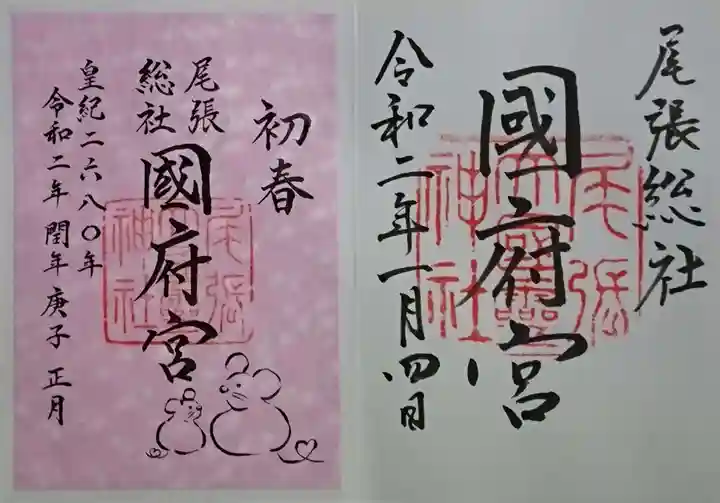 初春
尾張
総社
國府宮
皇紀二六八〇年
令和二年 閏年 庚子 正月
尾張
神社
尾張総社
國府宮
令和二年一月四日
尾張
神社